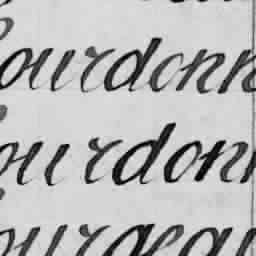 ourdonn
ourdon
ourgeau